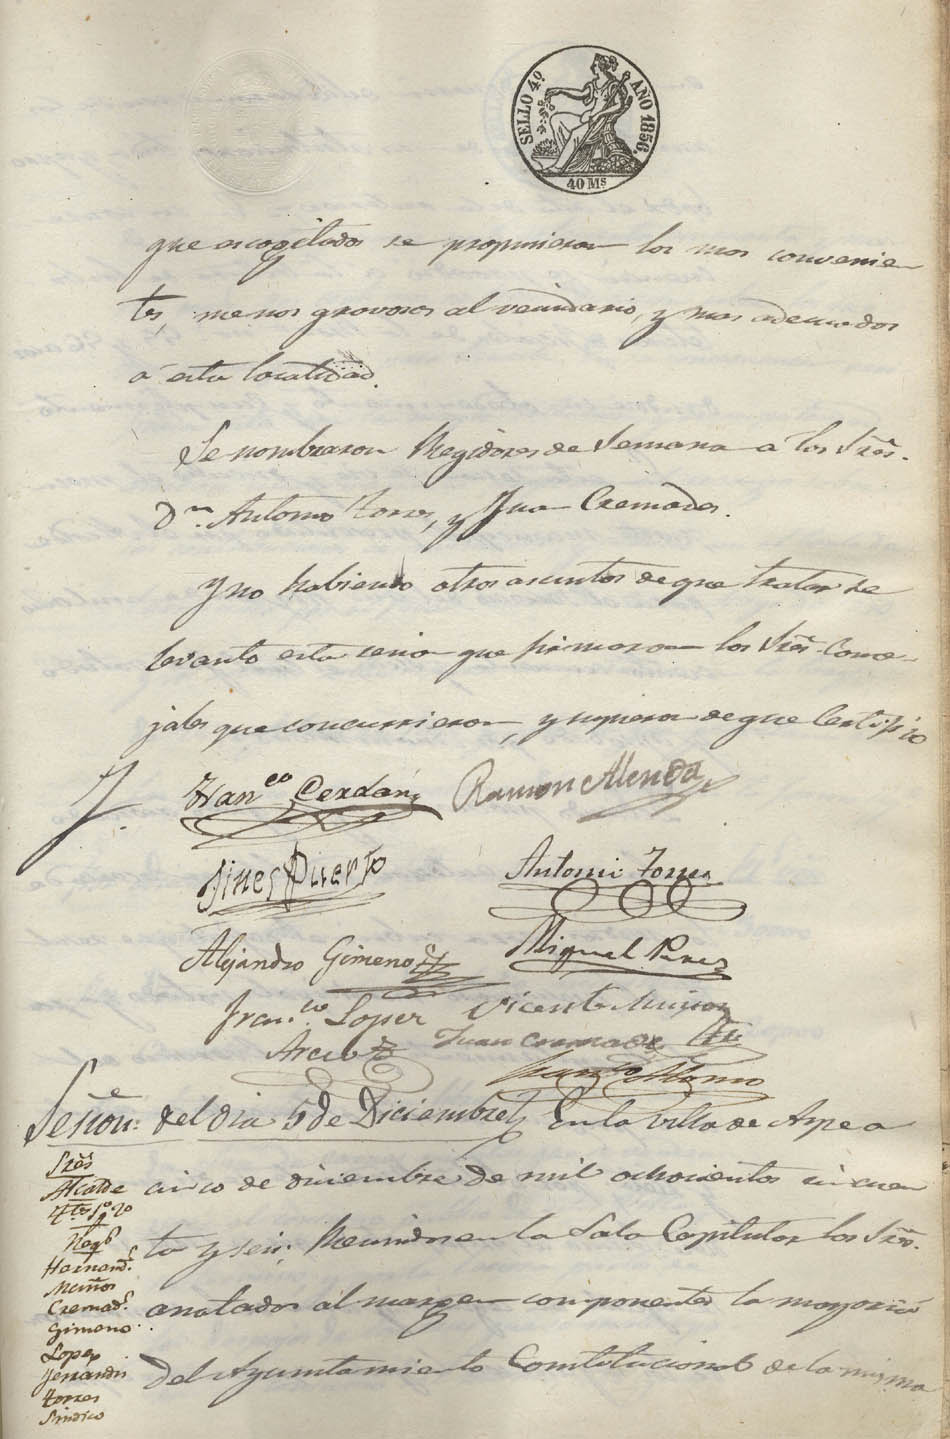 SELLO 4º. AÑO 1856.
40 Ms
que escogitados se propusieron los mas convenien-
tes, menos gravosos al vecindario, y mas adecuados
a esta localidad.
Se nombraron Regidores de Semana a los Sres.
Dn. Antonio Torres, y Juan Cremades.
Y no habiendo otros asuntos de que tratar se
levanto esta sesion que firmaron los Sres. Conce-
jales que concurrieron, y supieron de que Certifico
Franco Cerdan Ramon Alenda
Gines Puerto Antonio Torres
Alejandro Gimeno Miguel Perez
Franco Lopez Vicente Muñoz
Arcebo Juan Cremades
Alonso
Señon: del dia 5 de Diciembre En la villa de Aspe a
cinco de diciembre de mil ochocientos cincuen
ta y seis: Reunidos en la Sala Capitular los Sres.
anotados al margen componentes la mayoria
del Ayuntamiento Constitucional de la misma
Sres
Alcalde
Ttes 1º 2º
Regs
Hernands
Muños
Cremads
Gimeno
Lopez
Torres
Sindico